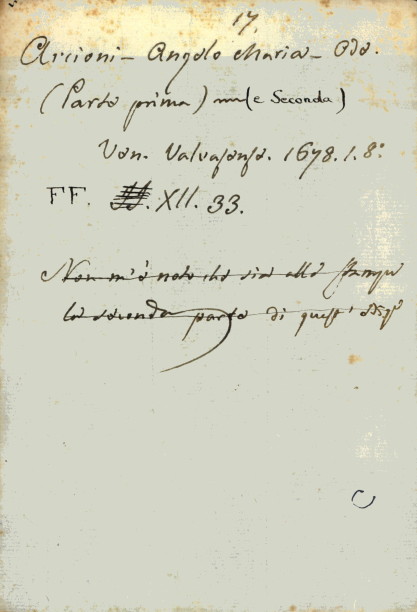 17.
Arcioni - Angelo Maria - Ode.
(Parte prima) (e Seconda)
Ven. Valvasense. 1678. 1. 8º
FF. XII. 33.
Non m'è noto che sia alle stampe
la seconda parte di quest'